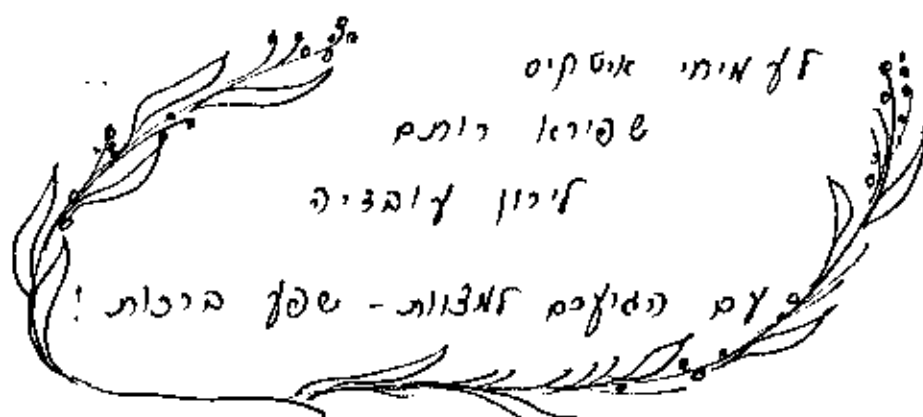 לעמיחי איטקיס
שפירא רותם
לירון עובדיה
עם הגיעכם למצוות - שפע ברכות !